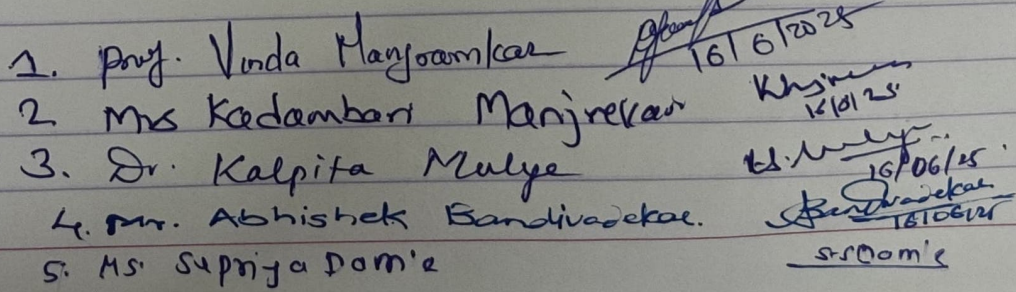 1. Prof. Vinda Manjramkar 16/6/2025
2 Mrs Kadambari Manjrekar 16/6/25
3. Dr. Kalpita Mulye 16/06/25.
4. Mr. Abhishek Bandivadekar. Bandivadekar 16/06/25
5. Ms. Supriya Dom'e S.S Dom'e